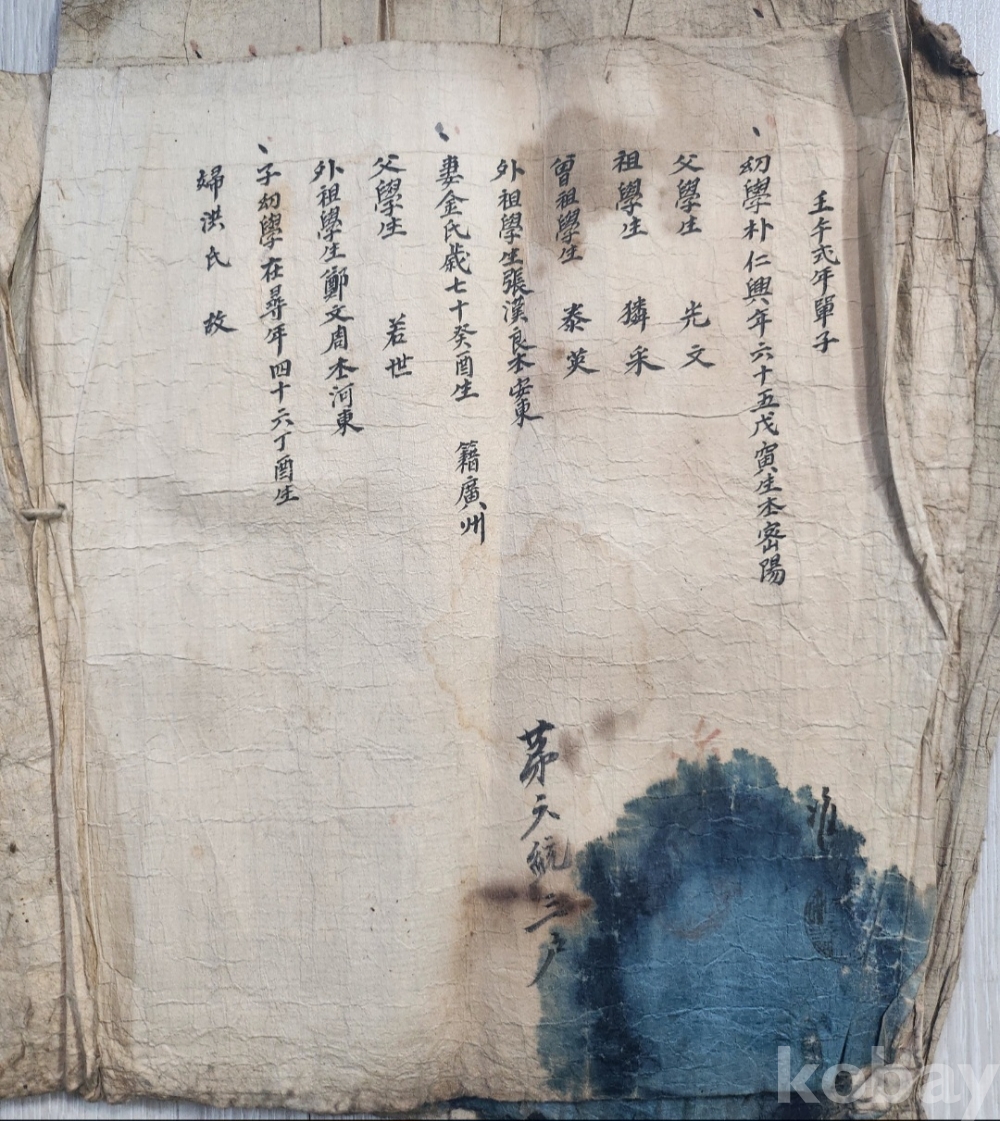 壬午式年單子
幼學朴仁興年六十五戊寅生本密陽
父學生 光文
祖學生 獜采
曾祖學生 泰英
外祖學生張漢良本安東
妻金氏歲七十癸酉生 籍廣州
父學生 若世
外祖學生鄭文周本河東
子幼學在尋年四十六丁酉生
婦洪氏 故
苐 統三户
kobay